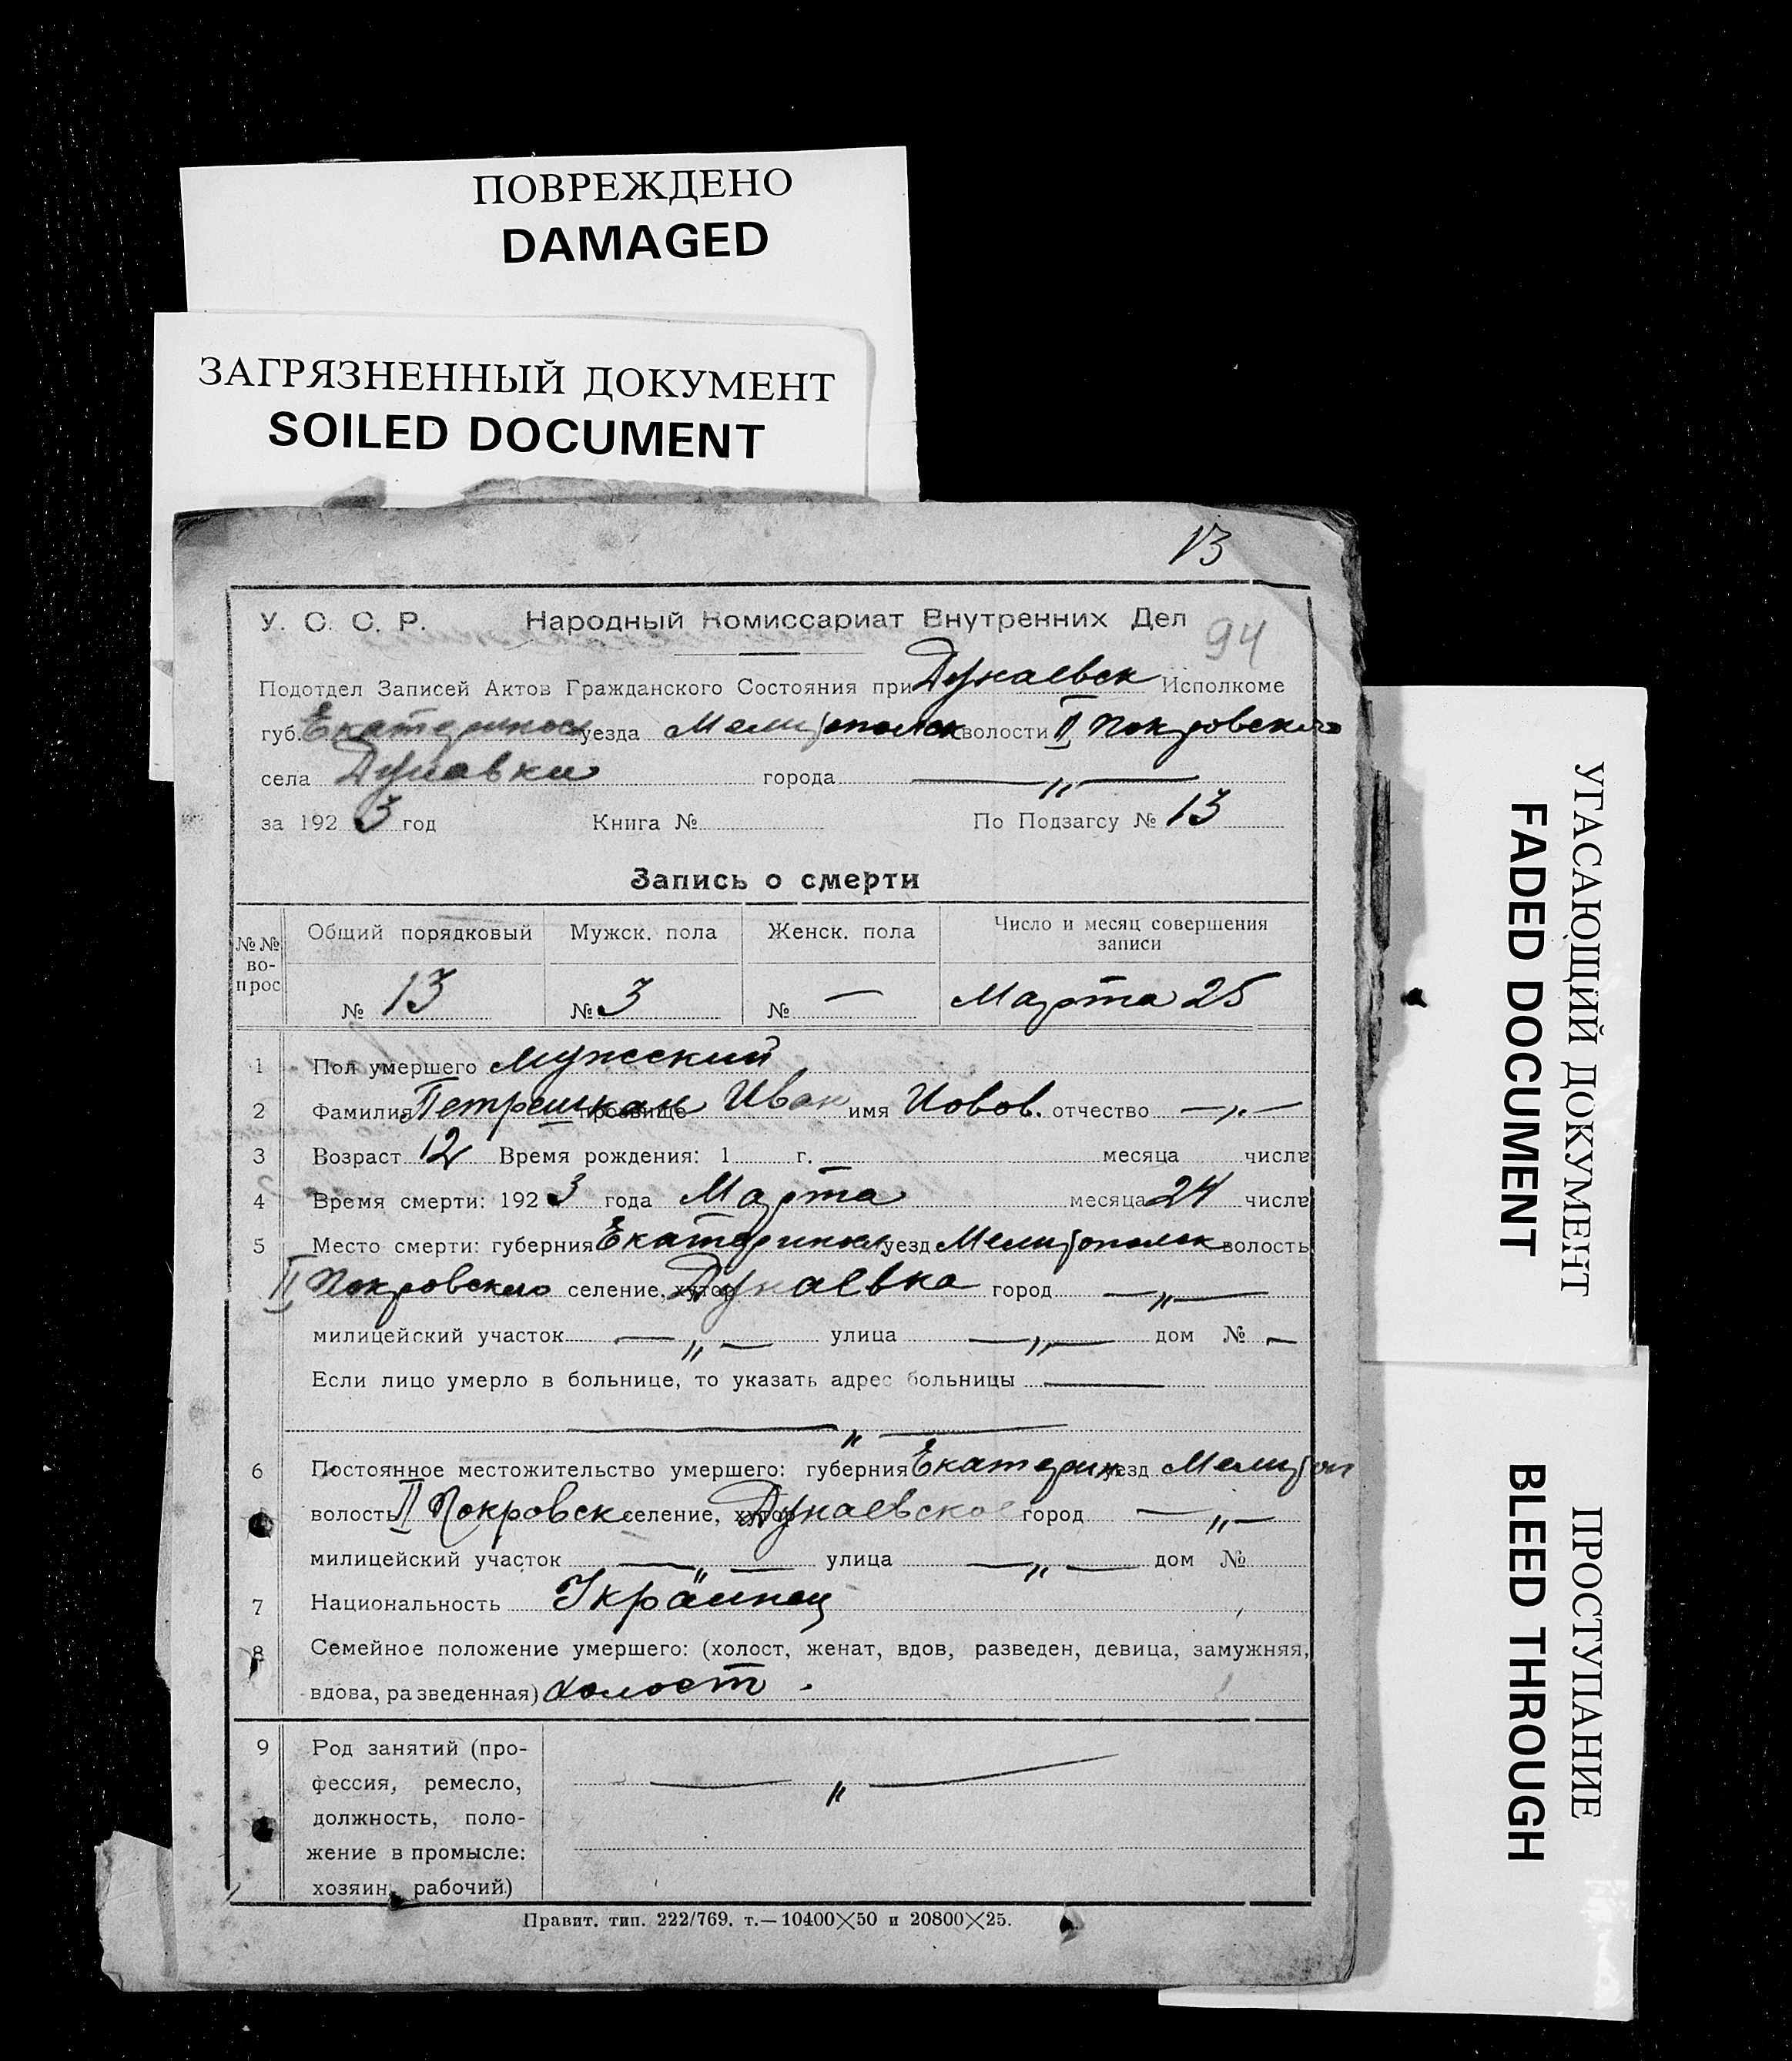 ПОВРЕЖДЕНО
DAMAGED
ЗАГРЯЗНЕННЫЙ ДОКУМЕНТ
SOILED DOCUMENT
13
У. С. С. Р. Народный Комиссариат Внутренних Дел
94
Подотдел Записей Актов Гражданского Состояния при Дунаевск Исполкоме
губ. Екатеринос уезда Мелитопольск волости II Покровского
села Дунаевки города —„—
за 1923 год Книга № По Подзагсу № 13
Запись о смерти
№№ во-прос Общий порядковый Мужск. пола Женск. пола Число и месяц совершения записи
№ 13 № 3 № — Марта 25
1 Пол умершего мужской
2 Фамилия прозвище Иван имя Иовов. отчество —„—
3 Возраст 12 Время рождения: 1 г. месяца числа
4 Время смерти: 1923 года Марта месяца 24 числа
5 Место смерти: губерния Екатеринос уезд Мелитопольск волость
II Покровского селение, хутор Дунаевка город —„—
милицейский участок —„— улица —„— дом № —
Если лицо умерло в больнице, то указать адрес больницы —
—„—
6 Постоянное местожительство умершего: губерния Екатерин уезд Мелитоп
волость II Покровск селение, хутор Дунаевское город —„—
милицейский участок —„— улица —„— дом №
7 Национальность Украинец
8 Семейное положение умершего: (холост, женат, вдов, разведен, девица, замужняя,
вдова, разведенная) холост.
9 Род занятий (про-
фессия, ремесло, —„—
должность, поло-
жение в промысле:
хозяин, рабочий)
Правит. тип. 222/769. т.—10400×50 и 20800×25.
УГАСАЮЩИЙ ДОКУМЕНТ
FADED DOCUMENT
ПРОСТУПАНИЕ
BLEED THROUGH